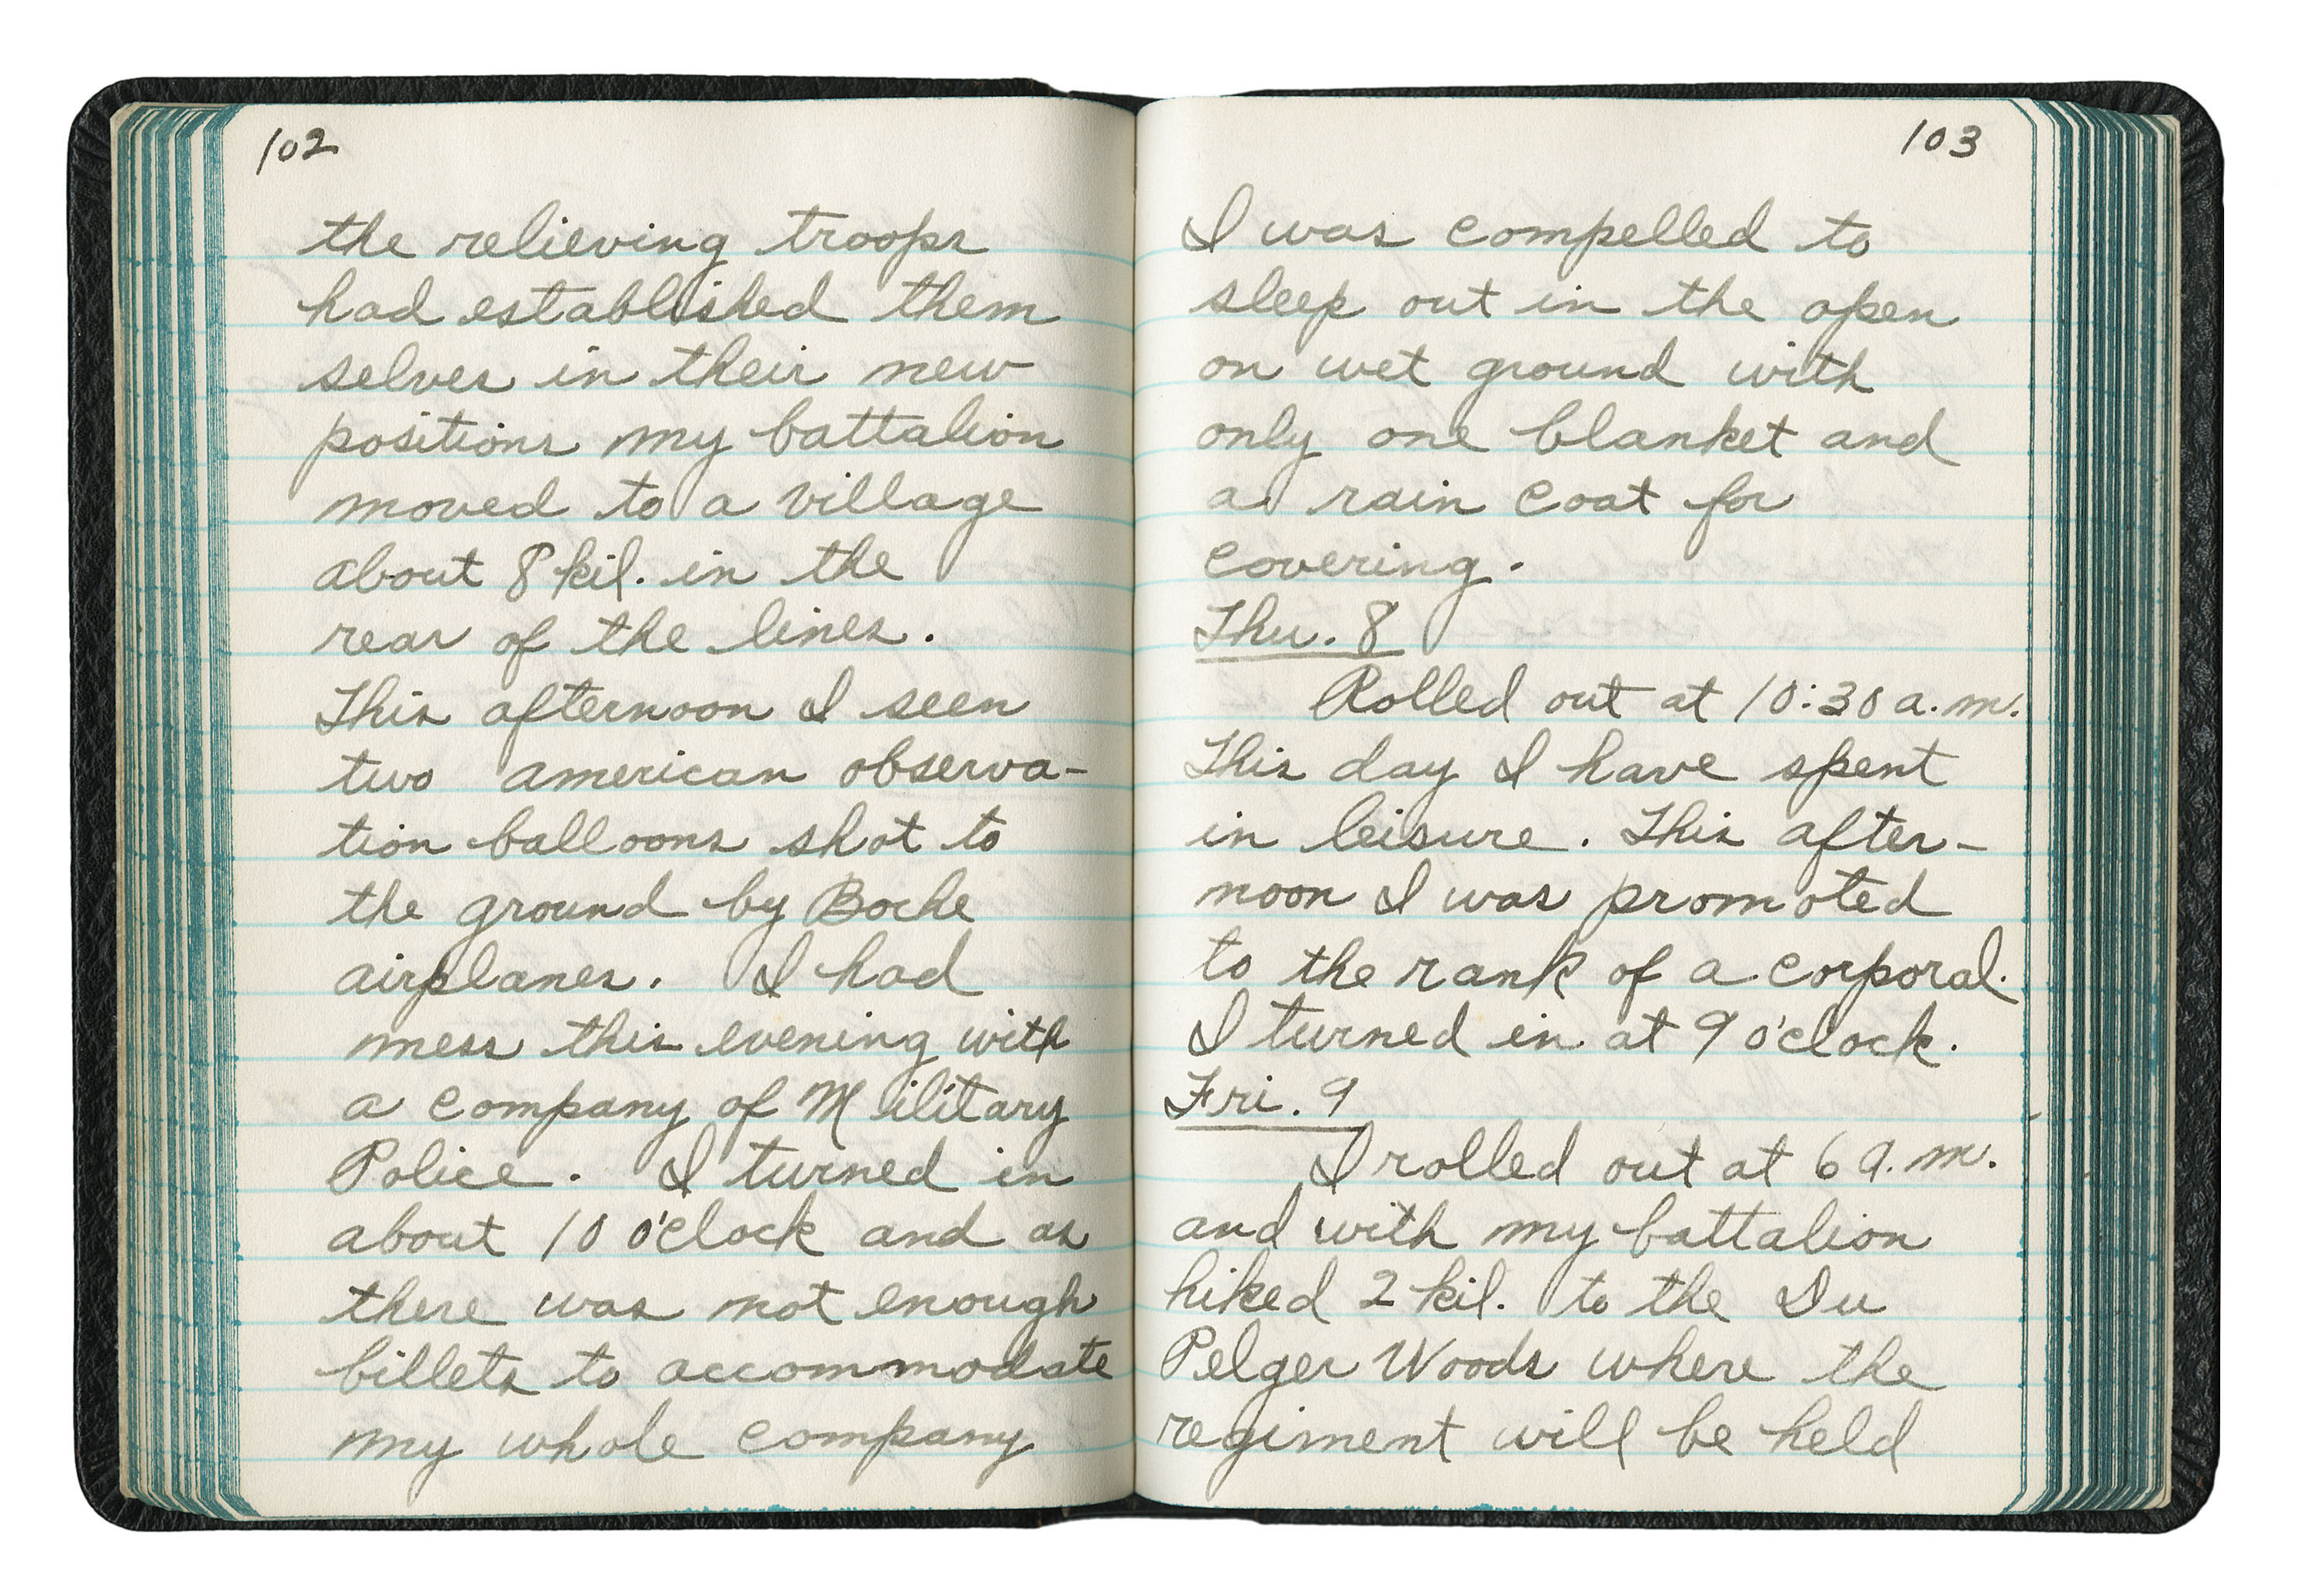 102
the relieving troops
had established them
selves in their new
positions my battalion
moved to a village
about 8 kil. in the
rear of the lines.
This afternoon I seen
two american observa-
tion balloons shot to
the ground by Boche
airplanes. I had
mess this evening with
a company of Military
Police. I turned in
about 10 o'clock and as
there was not enough
billets to accommodate
my whole company
103
I was compelled to
sleep out in the open
on wet ground with
only one blanket and
a rain coat for
covering.
Thu. 8
Rolled out at 10:30 a.m.
This day I have spent
in leisure. This after-
noon I was promoted
to the rank of a corporal.
I turned in at 9 o'clock.
Fri. 9
I rolled out at 6 a.m.
and with my battalion
hiked 2 kil. to the Du
Pelger Woods where the
regiment will be held